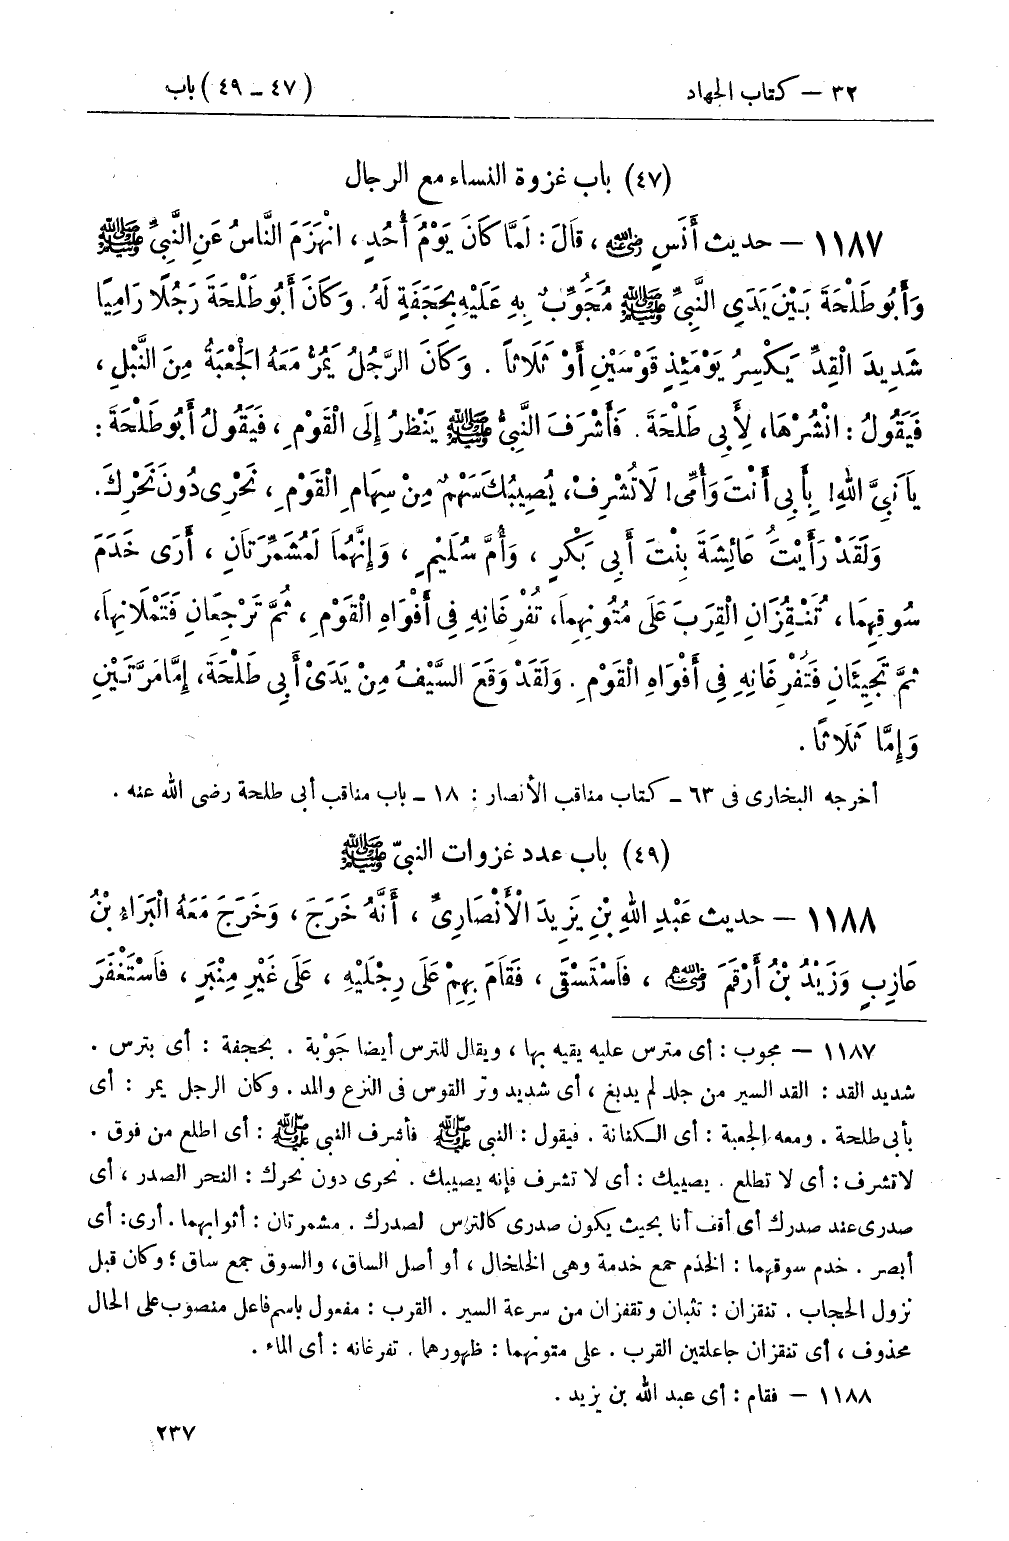 ٣٢ — كتاب الجهاد
(٤٧ - ٤٩) باب
(٤٧) باب غزوة النساء مع الرجال
١١٨٧ — حديث أَنَسٍ رضي الله عنه، قَالَ: لَمَّا كَانَ يَوْمُ أُحُدٍ، انْهَزَمَ النَّاسُ عَنِ النَّبِيِّ ﷺ
وَأَبُو طَلْحَةَ بَيْنَ يَدَيِ النَّبِيِّ ﷺ مُجَوِّبٌ بِهِ عَلَيْهِ بِحَجَفَةٍ لَهُ. وَكَانَ أَبُو طَلْحَةَ رَجُلًا رَامِيًا
شَدِيدَ الْقِدِّ يَكْسِرُ يَوْمَئِذٍ قَوْسَيْنِ أَوْ ثَلَاثًا. وَكَانَ الرَّجُلُ يَمُرُّ مَعَهُ الْجَعْبَةُ مِنَ النَّبْلِ،
فَيَقُولُ: انْشُرْهَا، لِأَبِي طَلْحَةَ. فَأَشْرَفَ النَّبِيُّ ﷺ يَنْظُرُ إِلَى الْقَوْمِ، فَيَقُولُ أَبُو طَلْحَةَ:
يَا نَبِيَّ اللهِ! بِأَبِي أَنْتَ وَأُمِّى! لَا تُشْرِفْ، يُصِيبُكَ سَهْمٌ مِنْ سِهَامِ الْقَوْمِ، نَحْرِى دُونَ نَحْرِكَ.
وَلَقَدْ رَأَيْتُ عَائِشَةَ بِنْتَ أَبِي بَكْرٍ، وَأُمَّ سُلَيْمٍ، وَإِنَّهُمَا لَمُشَمِّرَتَانِ، أَرَى خَدَمَ
سُوقِهِمَا، تُنْقِزَانِ الْقِرَبَ عَلَى مُتُونِهِمَا، تُفْرِغَانِهِ فِي أَفْوَاهِ الْقَوْمِ، ثُمَّ تَرْجِعَانِ فَتَمْلَآنِهَا،
ثُمَّ تَجِيئَانِ فَتُفْرِغَانِهِ فِي أَفْوَاهِ الْقَوْمِ. وَلَقَدْ وَقَعَ السَّيْفُ مِنْ يَدَىْ أَبِي طَلْحَةَ، إِمَّا مَرَّتَيْنِ
وَإِمَّا ثَلَاثًا.
أخرجه البخارى فى ٦٣ - كتاب مناقب الأنصار: ١٨ - باب مناقب أبى طلحة رضى الله عنه.
(٤٩) باب عدد غزوات النبيّ ﷺ
١١٨٨ — حديث عَبْدِ اللهِ بْنِ يَزِيدَ الْأَنْصَارِىِّ، أَنَّهُ خَرَجَ، وَخَرَجَ مَعَهُ الْبَرَاءُ بْنُ
عَازِبٍ وَزَيْدُ بْنُ أَرْقَمَ رضي الله عنهم، فَاسْتَسْقَى، فَقَامَ بِهِمْ عَلَى رِجْلَيْهِ، عَلَى غَيْرِ مِنْبَرٍ، فَاسْتَغْفَرَ
١١٨٧ — مجوب: أى مترس عليه يقيه بها، ويقال للترس أيضا جَوْبة. بحجفة: أى بترس.
شديد القد: القد السير من جلد لم يدبغ، أى شديد وتر القوس فى النزع والمد. وكان الرجل يمر: أى
بأبى طلحة. ومعه الجعبة: أى الكنانة. فيقول: النبى ﷺ فأشرف النبى ﷺ: أى اطلع من فوق.
لا تشرف: أى لا تطلع. يصيبك: أى لا تشرف فإنه يصيبك. نحرى دون نحرك: النحر الصدر، أى
صدرى عند صدرك أى أقف أنا بحيث يكون صدرى كالترس لصدرك. مشمرتان: أثوابهما. أرى: أى
أبصر. خدم سوقهما: الخدم جمع خدمة وهى الخلخال، أو أصل الساق، والسوق جمع ساق؛ وكان قبل
نزول الحجاب. تنقزان: تثبان وتقفزان من سرعة السير. القرب: مفعول باسم فاعل منصوب على الحال
محذوف، أى تنقزان جاعلتين القرب. على متونهما: ظهورهما. تفرغانه: أى الماء.
١١٨٨ — فقام: أى عبد الله بن يزيد.
٢٣٧